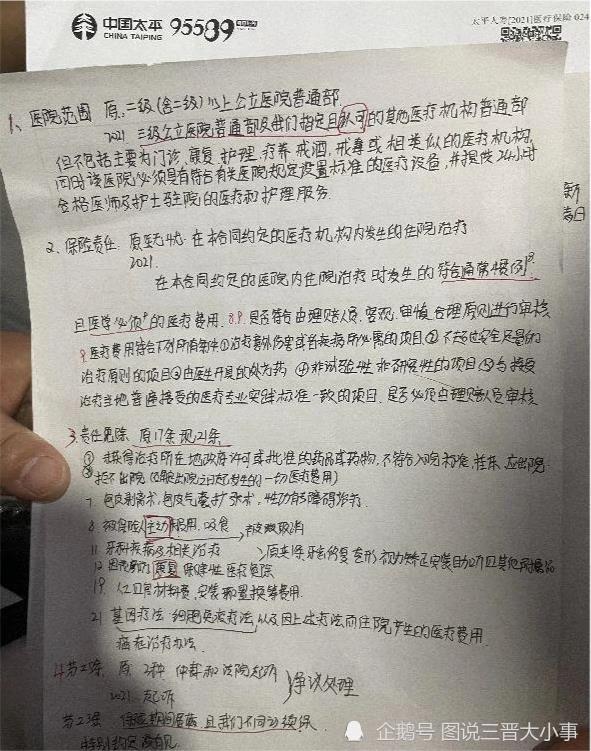 中国太平
CHINA TAIPING
95589
太平人寿[2021]医疗保险 024
1、医院范围 原:二级(含二级)以上公立医院普通部
2021 三级公立医院普通部及我们指定且认可的其他医疗机构普通部
但不包括主要为门诊、康复、护理、疗养、戒酒、戒毒或相类似的医疗机构,
同时该医院必须具有符合有关医院规定设置标准的医疗设备,并提供24小时
合格医师及护士驻院的医疗和护理服务.
2、保险责任. 原 在本合同约定的医疗机构内发生的住院治疗
2021.
在本合同约定的医院内住院治疗时发生的符合通常惯例
且医学必须的医疗费用. 8.9.是否符合由理赔人员,客观,审慎,合理原则进行审核
9.医疗费用符合下列所有条件①治疗意外伤害或者疾病所必需的项目②不超过安全足量的
治疗原则的项目③由医生开具的处方药 ④非试验性非研究性的项目⑤与接受
治疗当地普遍接受的医疗专业实践标准一致的项目.是否必须由理赔人员审核
3.责任免除. 原17条 现21条
① 未获得治疗所在地政府许可或批准的药品或药物,不符合入院标准,挂床,应出院
拒不出院
7. 包皮环切术,包皮气囊扩张术,性功能障碍治疗.
8 主动 吸食
11. 牙科疾病及相关治疗
12 康复
19. 人工耳 材料费,安装和置换等费用.
21. 基因疗法 细胞免疫疗法,以及因上述疗法而住院产生的医疗费用
癌症治疗办法.
4 第22条. 原 2种 仲裁和法院起诉
2021. 起诉
争议处理
第23条 保险期间届满,且我们不同意续保.
特别约定
企鹅号 图说三晋大小事